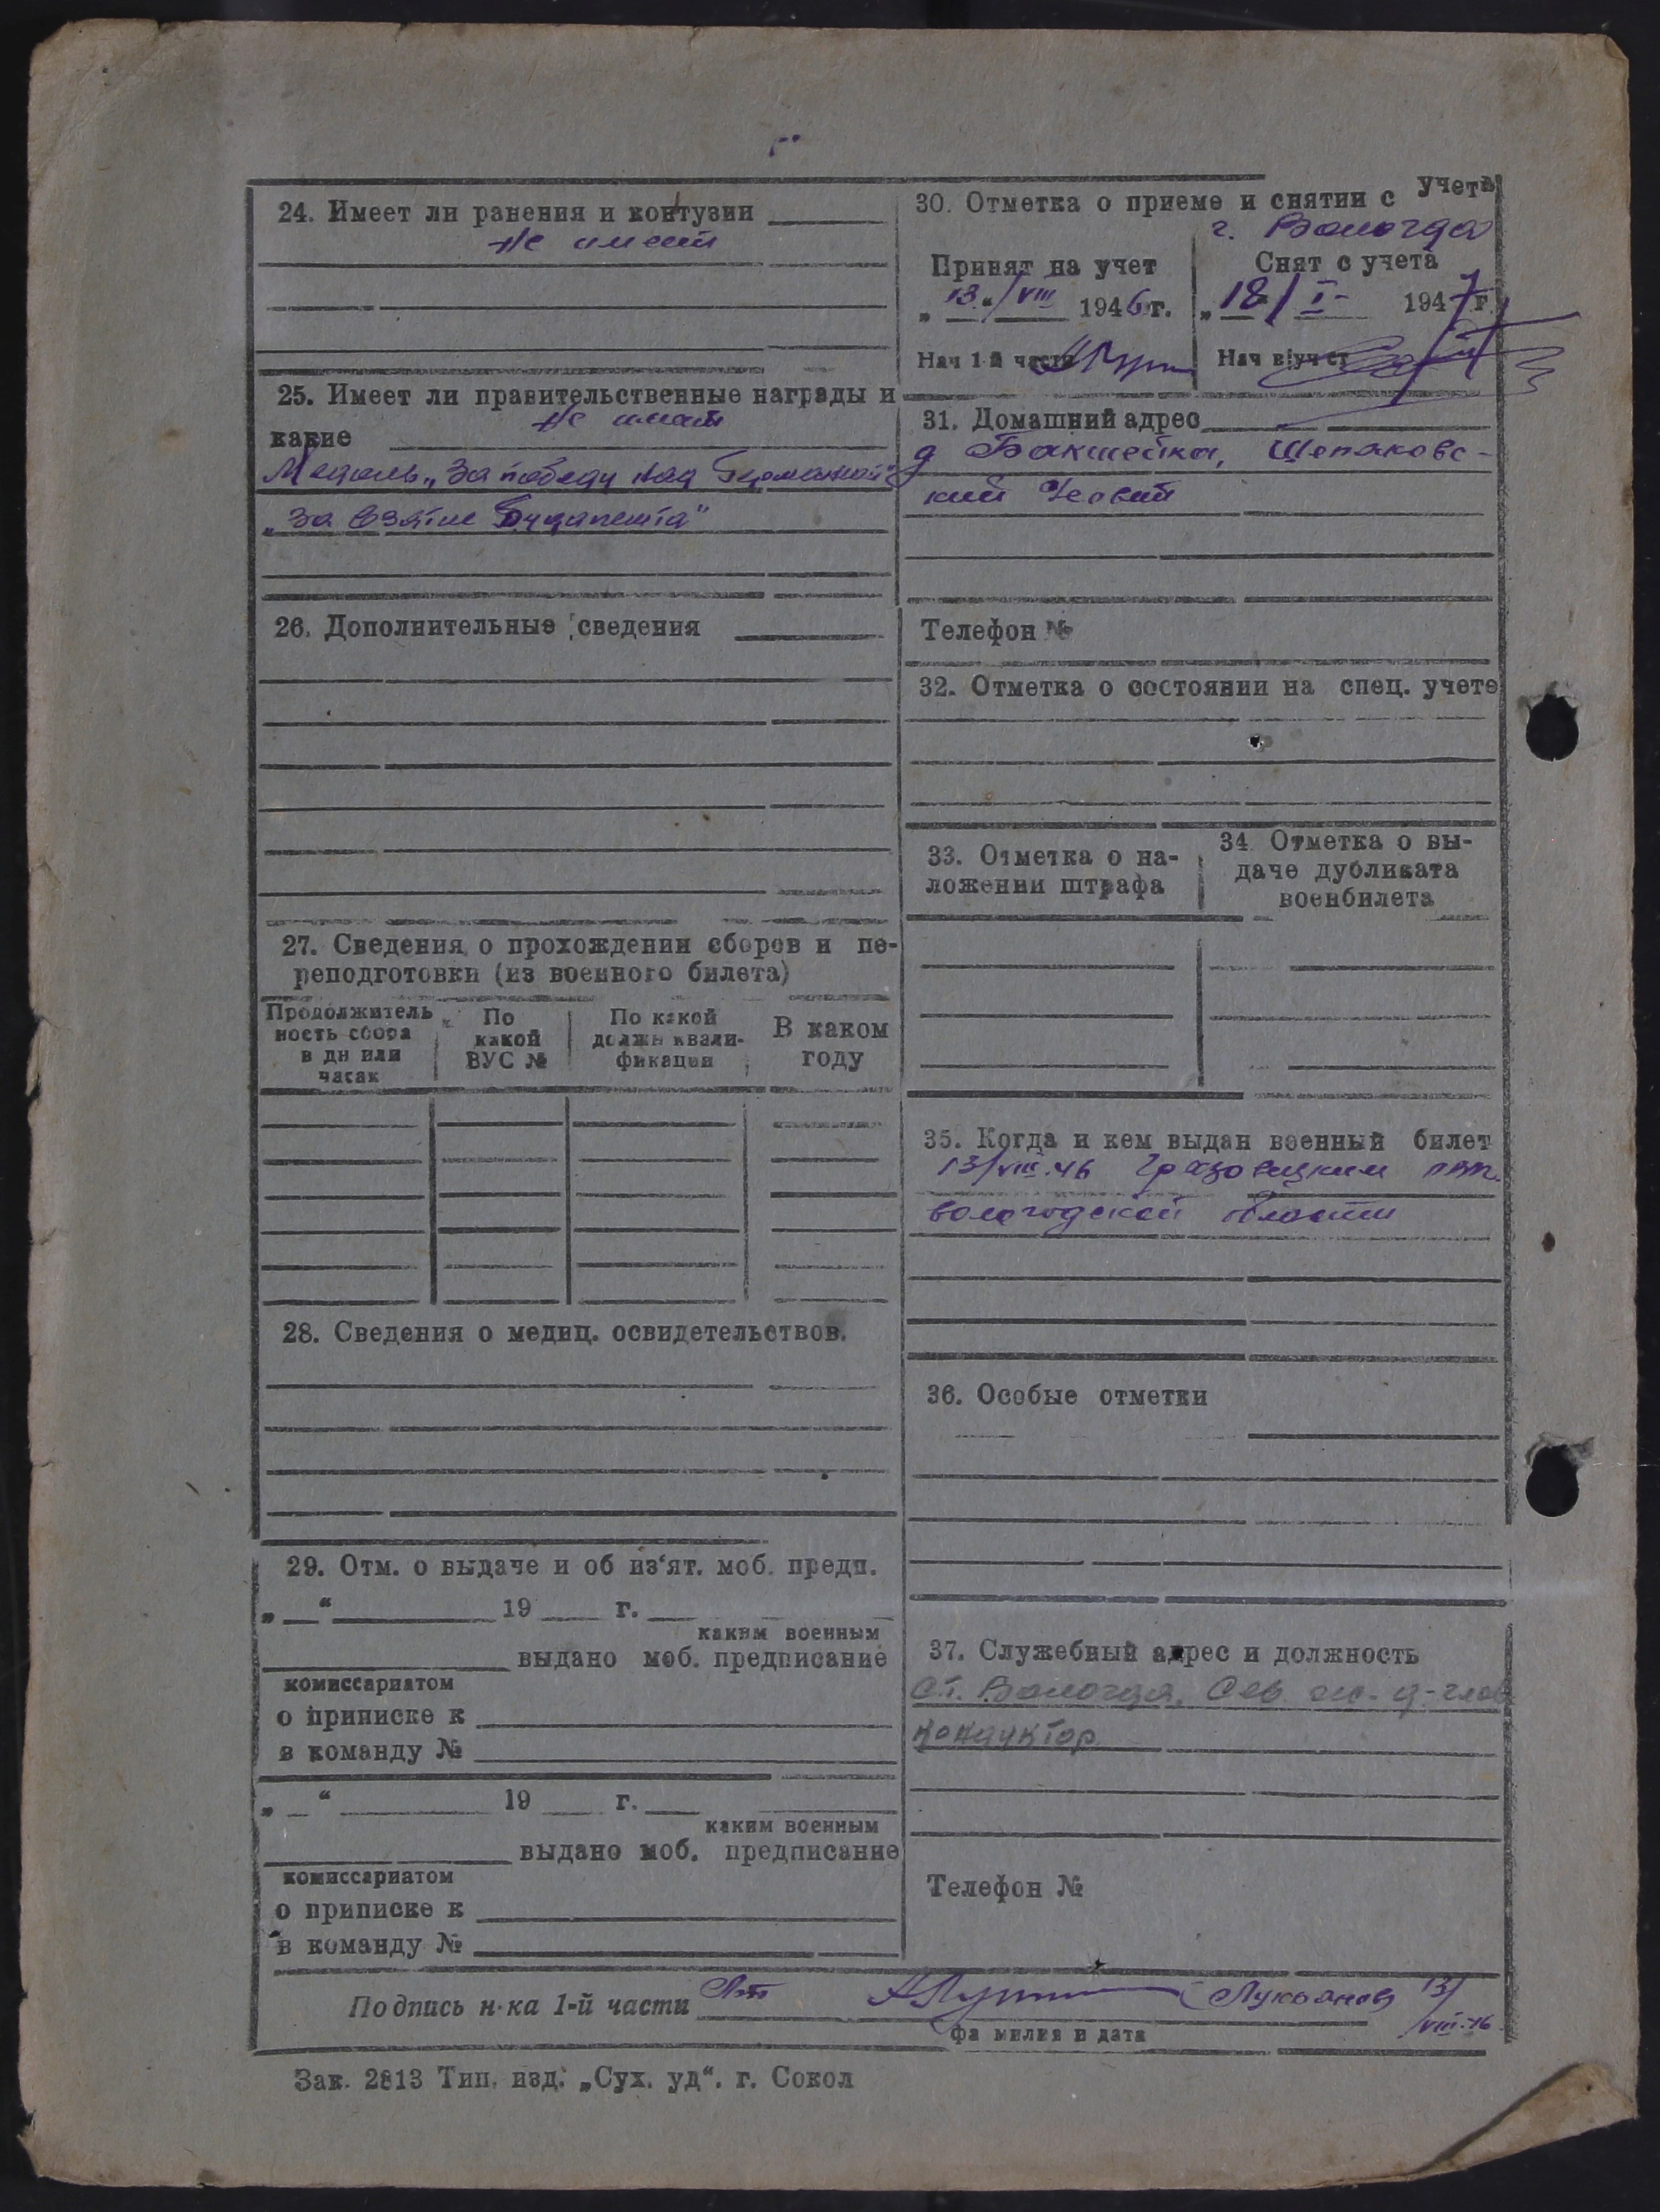 24. Имеет ли ранения и контузии
не имеет
25. Имеет ли правительственные награды и
не имеет
какие
Медаль „За победу над Германией"
„За взятие Будапешта"
26. Дополнительные сведения
27. Сведения о прохождении сборов и пе-
реподготовки (из военного билета)
Продолжитель
ность сбора
в дн или
часах
По
какой
ВУС №
По какой
должн квали-
фикации
В каком
году
28. Сведения о медиц. освидетельствов.
29. Отм. о выдаче и об из'ят. моб. предп.
„ “ 19 г.
каким военным
выдано моб. предписание
комиссариатом
о приписке к
в команду №
„ “ 19 г.
каким военным
выдано моб. предписание
комиссариатом
о приписке к
в команду №
30. Отметка о приеме и снятии с учета
г. Вологда
Принят на учет
„13“/VIII 1946 г.
Нач 1-й части
Снят с учета
„18/ I- 1947 г.
Нач в/уч ст
31. Домашний адрес
д Бакшейка, Щепаковс-
кий
Телефон №
32. Отметка о состоянии на спец. учете
33. Отметка о на-
ложении штрафа
34 Отметка о вы-
даче дубликата
военбилета
35. Когда и кем выдан военный билет
13/VIII.46 Грязовецким
вологодской области
36. Особые отметки
37. Служебный адрес и должность
ст. Вологда, Сев. ж.-д-глав
кондуктор
Телефон №
Подпись н-ка 1-й части Лукьянов 13/
VIII-46
фамилия и дата
Зак. 2813 Тип. изд. „Сух. уд“. г. Сокол